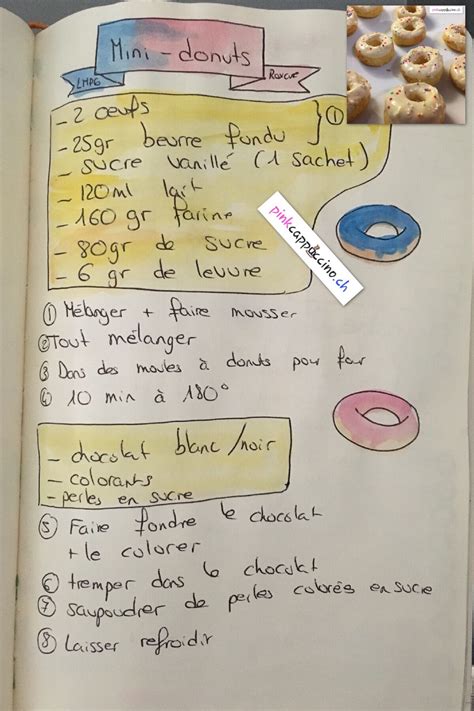 Mini-donuts
LMDG
Roxcue
- 2 oeufs
- 25gr beurre fondu
①
- sucre vanillé (1 sachet)
- 120ml lait
- 160 gr farine
- 80gr de sucre
- 6 gr de levure
pinkcappuccino.ch
① Mélanger + faire mousser
② Tout mélanger
③ Dans des moules à donuts pour four
④ 10 min à 180°
- chocolat blanc/noir
- colorants
- perles en sucre
⑤ Faire fondre le chocolat
+ le colorer
⑥ tremper dans le chocolat
⑦ saupoudrer de perles colorés en sucre
⑧ Laisser refroidir